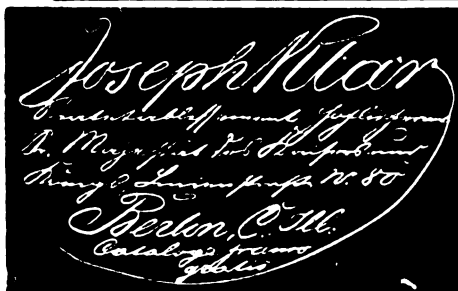 Joseph Klar
Hoflieferant
Sr. Majestät des Kaisers und
Königs Linienstraße N. 80
Berlin, C.
Cataloge franco
gratis